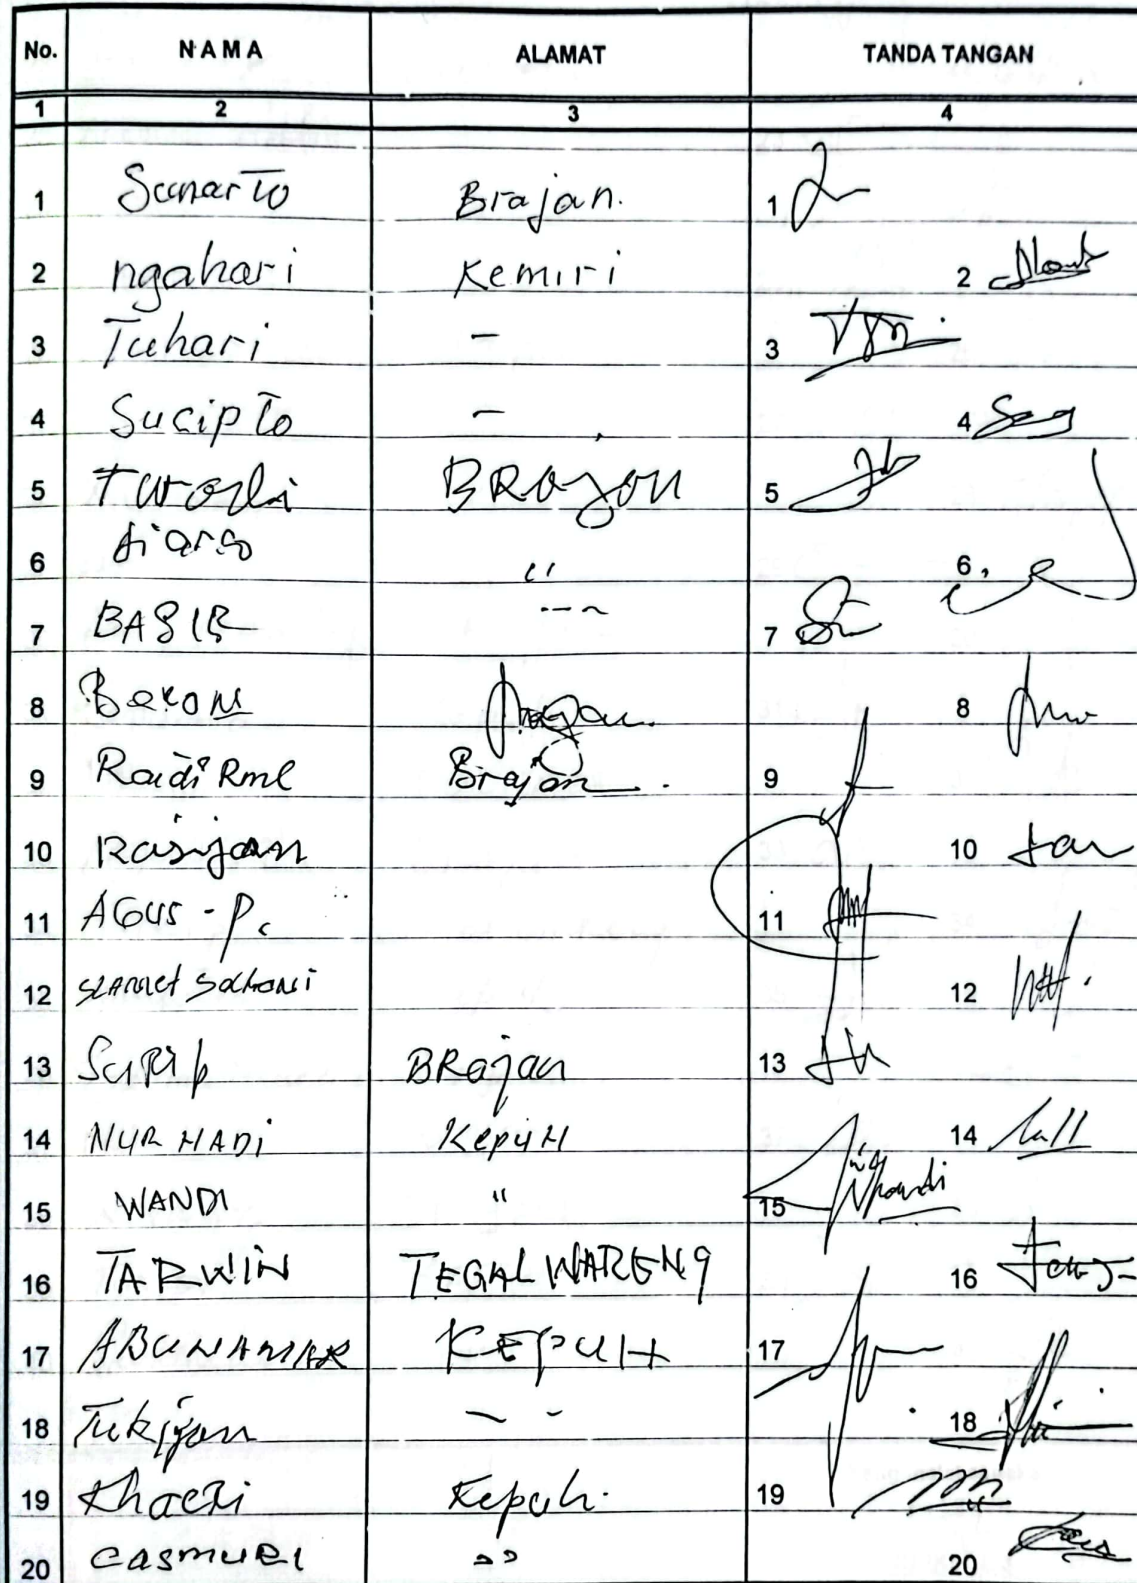 No. NAMA ALAMAT TANDA TANGAN
1 2 3 4
1 Sunarto Brajan. 1
2 ngahari Kemiri 2
3 Tuhari - 3
4 Sucipto - 4
5 BRajan 5
6 " 6
7 BASIR --- 7
8 8
9 Raidi Rml Brajan. 9
10 Rasijan 10
11 AGUS - P. 11
12 SLAMET 12
13 BRajan 13
14 NUR HADI KepuH 14
15 WANDI " 15
16 TARWIN TEGALWARENG 16
17 KEPUH 17
18 Tukijan - - 18
19 Khaeri Kepuh. 19
20 CASMURI " 20